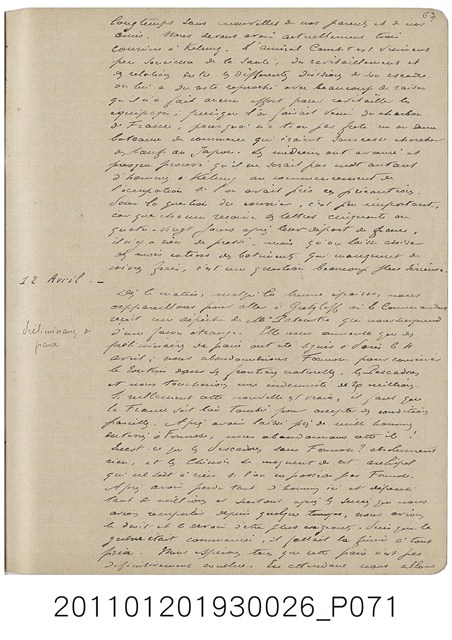 67
longtemps sans nouvelles de nos parents et de nos
amis. Nous devons avoir actuellement trois
courriers à Kelung. L'amiral Courbet est vraiment
peu soucieux de la santé, du ravitaillement et
des relations entre les différents divisions de son escadre.
on lui a du reste reproché avec beaucoup de raison
qu'il n'a fait aucun effort pour ravitailler les
équipages; puisque l'on faisait venir du charbon
de France, pourquoi n'a t on pas frété un ou deux
bateaux de commerce qui seraient chercher
des bœufs au Japon. Les médecins ont
presque prouvé qu'il ne serait pas mort autant
d'hommes à Kelung au commencement de
l'occupation si l'on avait pris ces précautions.
Pour la question du courrier, c'est peu important,
car que chacun reçoive ses lettres cinquante ou
quatre-vingt jours après leur départ de France,
il n'y a rien de pressé, mais qu'on laisse
des mois entiers des bâtiments qui manquent de
vivres frais, c'est une question beaucoup plus sérieuse.
12 Avril. -
Dès le matin, malgré la brume épaisse, nous
appareillons pour aller à Gutzlaff où le Commandant
reçoit une dépêche de Mr Patenôtre, qui nous surprend
d'une façon étrange. Elle nous annonce que des
Préliminaires de
paix
préliminaires de paix ont été signés à Paris le 4
avril; nous abandonnerions Formose pour conserver
le Tonkin dans ses frontières naturelles, les Pescadores
et nous toucherions une indemnité de 20 millions.
Si réellement cette nouvelle est vraie, il faut que
la France soit bien tombée pour accepter des conditions
pareilles. Après avoir laissé près de mille hommes
enterrés à Formose, nous abandonnons cette île!
Qu'est ce que les Pescadores, sans Formose? absolument
rien, et les Chinois se moquent de cet archipel
qui ne sert à rien si l'on ne possède pas Formose.
Après avoir perdu tant d'hommes et dépensé
tant de millions et surtout après les succès que nous
avions remportés depuis quelque temps, nous avions
le droit et le devoir d'être plus exigeants. Puisque la
guerre était commencée, il fallait la finir à tout
prix. Nous espérons tous que cette paix n'est pas
définitivement conclue. En attendant nous allons
201101201930026_P071